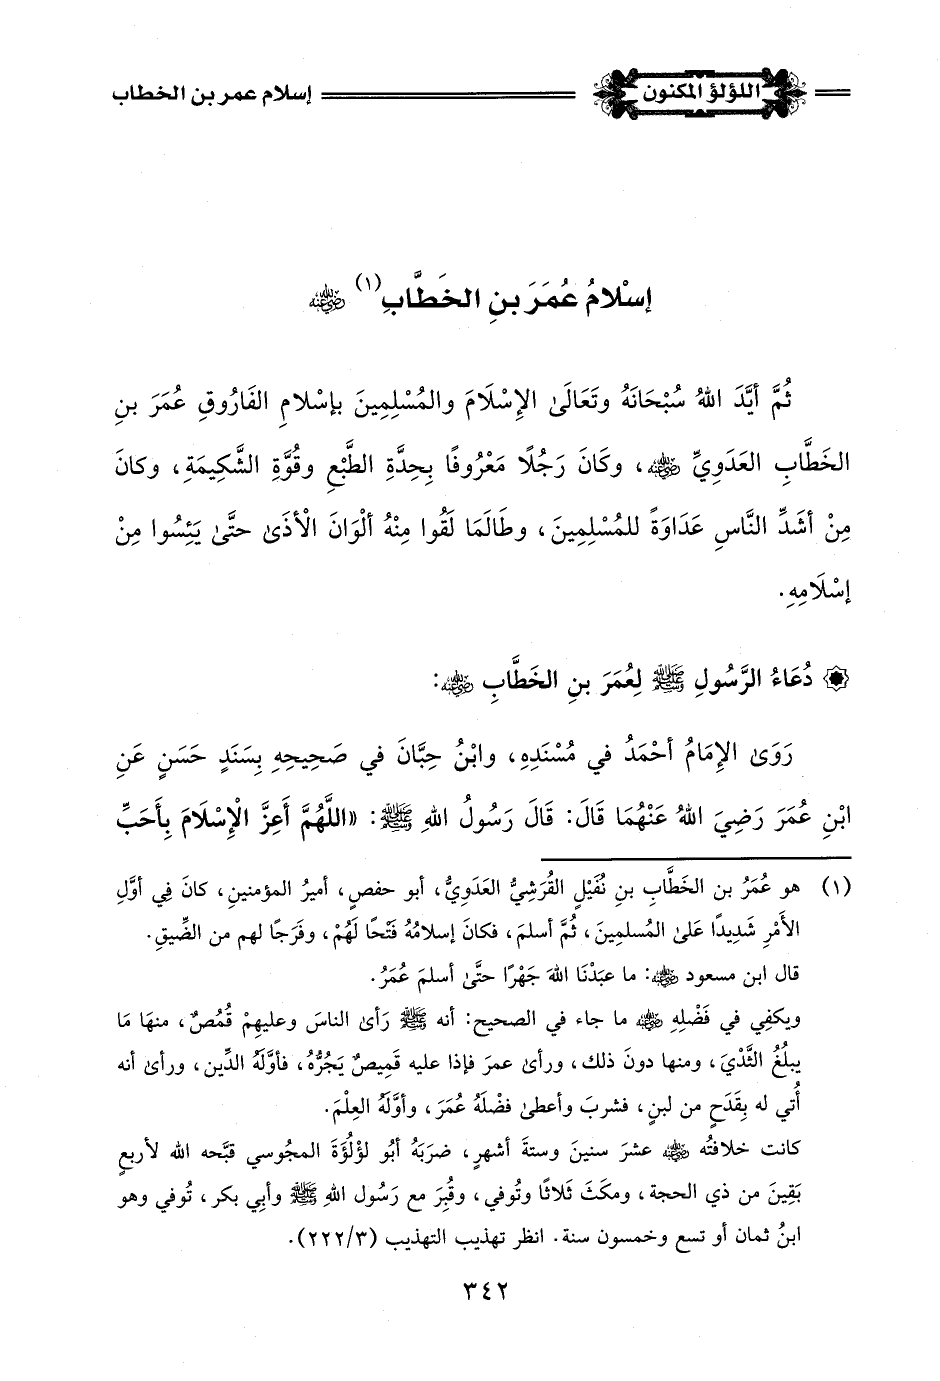 اللؤلؤ المكنون إسلام عمر بن الخطاب
إسْلامُ عُمَرَ بنِ الخَطَّابِ(١) رضي الله عنه
ثُمَّ أيَّدَ اللهُ سُبْحَانَهُ وتَعَالَىٰ الإسْلَامَ والمُسْلِمِينَ بإسْلامِ الفَارُوقِ عُمَرَ بنِ
الخَطَّابِ العَدَوِيِّ رضي الله عنه، وكَانَ رَجُلًا مَعْرُوفًا بِحِدَّةِ الطَّبْعِ وقُوَّةِ الشَّكِيمَةِ، وكانَ
مِنْ أشَدِّ النَّاسِ عَدَاوَةً للمُسْلِمِينَ، وطَالَمَا لَقُوا مِنْهُ ألْوَانَ الْأذَىٰ حتَّىٰ يَئِسُوا مِنْ
إسْلَامِهِ.
دُعَاءُ الرَّسُولِ ﷺ لِعُمَرَ بنِ الخَطَّابِ رضي الله عنه:
رَوَىٰ الإمَامُ أحْمَدُ في مُسْنَدِهِ، وابْنُ حِبَّانَ في صَحِيحِهِ بِسَنَدٍ حَسَنٍ عَنِ
ابْنِ عُمَرَ رَضِيَ اللهُ عَنْهُمَا قَالَ: قَالَ رَسُولُ اللهِ ﷺ: «اللَّهُمَّ أَعِزَّ الْإِسْلَامَ بِأَحَبِّ
(١) هو عُمَرُ بن الخَطَّابِ بنِ نُفَيْلٍ القُرَشِيُّ العَدَوِيُّ، أبو حفصٍ، أميرُ المؤمنين، كانَ فِي أوَّلِ
الأمْرِ شَدِيدًا عَلىٰ المُسلمِينَ، ثُمَّ أسلم، فكانَ إسلامُهُ فَتْحًا لَهُمْ، وفَرَجًا لهم من الضِّيقِ.
قال ابن مسعود رضي الله عنه: ما عبَدْنَا اللهَ جَهْرًا حتَّىٰ أسلمَ عُمَرُ.
ويكفِي في فَضْلِهِ رضي الله عنه ما جاء في الصحيح: أنه ﷺ رَأىٰ الناسَ وعليهِمْ قُمُصٌ، منهَا مَا
يبلُغُ الثَّدْيَ، ومنها دونَ ذلك، ورأىٰ عمرَ فإذا عليه قَمِيصٌ يَجُرُّهُ، فأوَّلَهُ الدِّين، ورأىٰ أنه
أُتي له بِقَدَحٍ من لبنٍ، فشربَ وأعطىٰ فضْلَهُ عُمَرَ، وأوَّلَهُ العِلْمَ.
كانت خلافتُه رضي الله عنه عشرَ سنينَ وستةَ أشهرٍ، ضرَبَهُ أبُو لؤْلُؤَةَ المجُوسي قبَّحه الله لأربعٍ
بَقِينَ من ذي الحجة، ومكَثَ ثَلاثًا وتُوفي، وقُبِرَ مع رَسُول اللهِ ﷺ وأبِي بكر، تُوفي وهو
ابنُ ثمان أو تسع وخمسون سنة. انظر تهذيب التهذيب (٢٢٢/٣).
٣٤٢